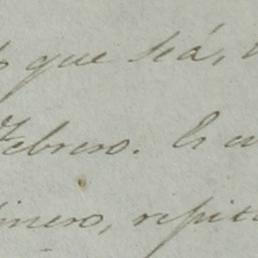 que será,
Febrero. Es
dinero, repit